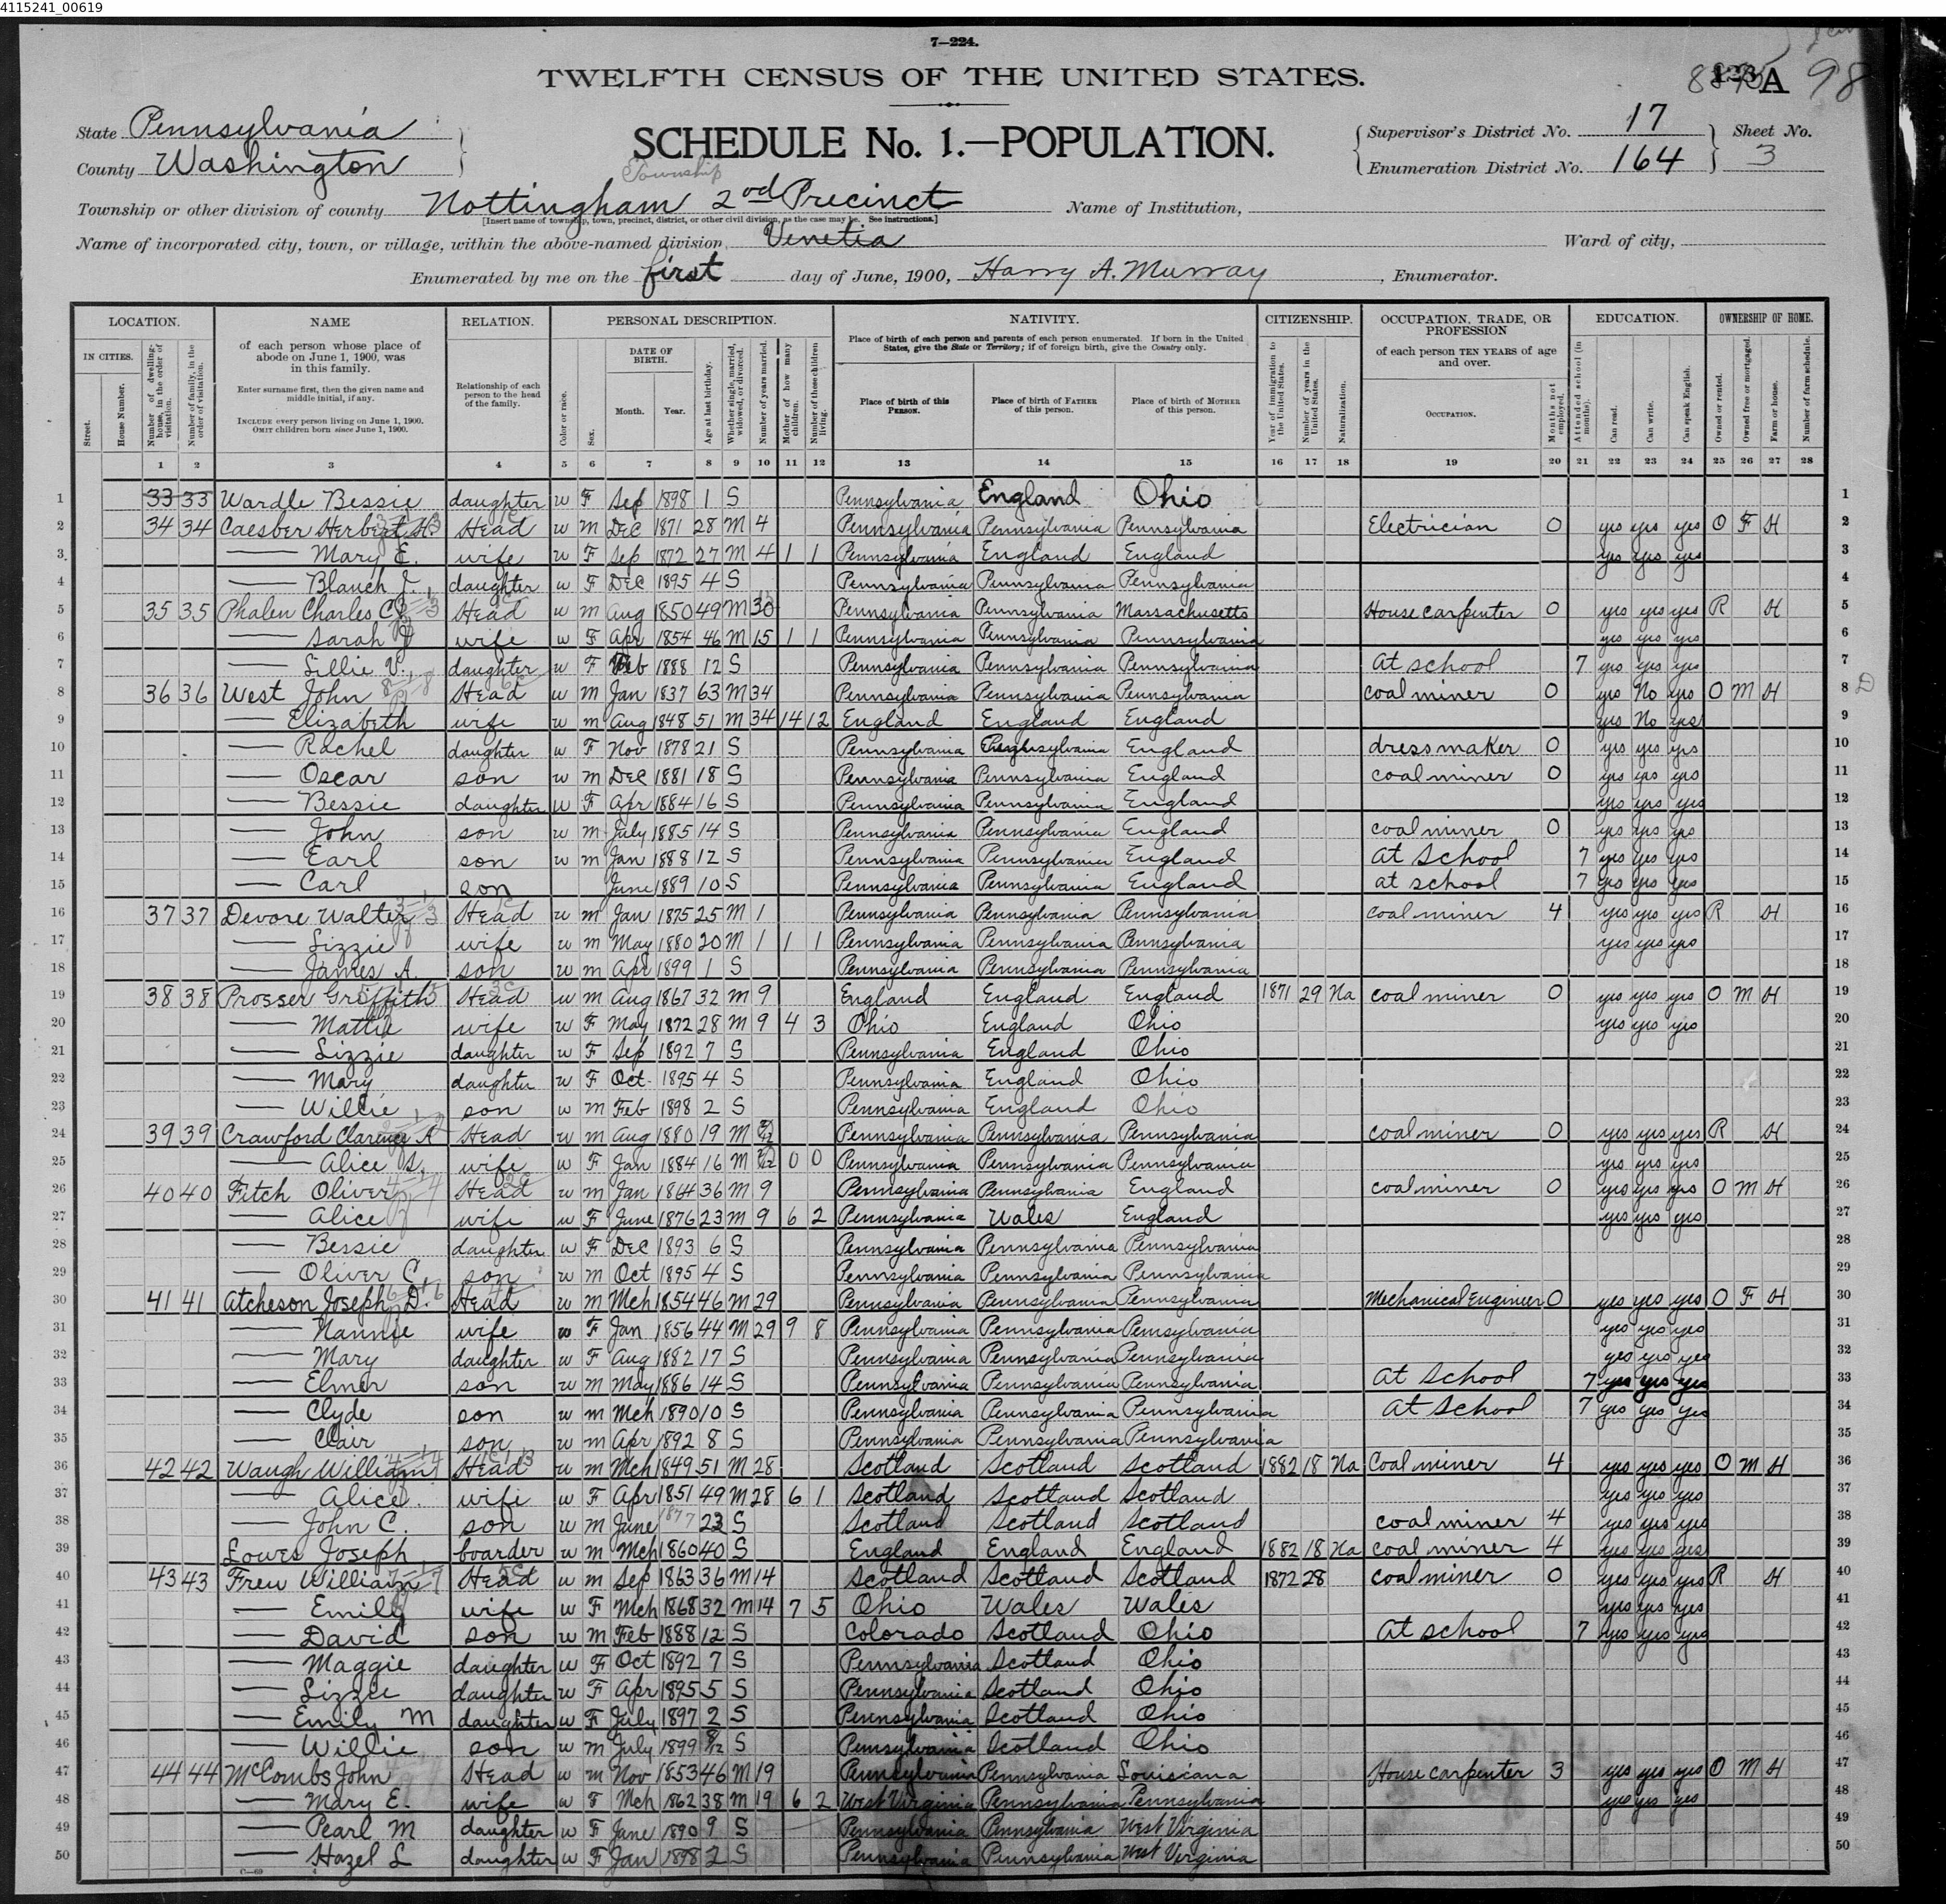 4115241_00619
7—224.
TWELFTH CENSUS OF THE UNITED STATES.
A 98
State Pennsylvania
County Washington
SCHEDULE No. 1.—POPULATION.
Supervisor's District No. 17 Sheet No.
Enumeration District No. 164 3
Township
Township or other division of county Nottingham 2nd Precinct Name of Institution,
[Insert name of township, town, precinct, district, or other civil division, as the case may be. See instructions.]
Name of incorporated city, town, or village, within the above-named division, Venetia Ward of city,
Enumerated by me on the first day of June, 1900, Harry A. Murray, Enumerator.
LOCATION. NAME RELATION. PERSONAL DESCRIPTION. NATIVITY. CITIZENSHIP. OCCUPATION, TRADE, OR PROFESSION EDUCATION. OWNERSHIP OF HOME.
IN CITIES. Street. House Number. Number of dwelling-house, in the order of visitation. Number of family, in the order of visitation.
of each person whose place of abode on June 1, 1900, was in this family.
Enter surname first, then the given name and middle initial, if any.
INCLUDE every person living on June 1, 1900. OMIT children born since June 1, 1900.
Relationship of each person to the head of the family.
Color or race. Sex. DATE OF BIRTH. Month. Year. Age at last birthday. Whether single, married, widowed, or divorced. Number of years married. Mother of how many children. Number of these children living.
Place of birth of each person and parents of each person enumerated. If born in the United States, give the State or Territory; if of foreign birth, give the Country only.
Place of birth of this PERSON. Place of birth of FATHER of this person. Place of birth of MOTHER of this person.
Year of immigration to the United States. Number of years in the United States. Naturalization.
of each person TEN YEARS of age and over.
OCCUPATION. Months not employed.
Attended school (in months). Can read. Can write. Can speak English. Owned or rented. Owned free or mortgaged. Farm or house. Number of farm schedule.
1 2 3 4 5 6 7 8 9 10 11 12 13 14 15 16 17 18 19 20 21 22 23 24 25 26 27 28
1 33 33 Wardle Bessie daughter w F Sep 1898 1 S Pennsylvania England Ohio 1
2 34 34 Caesber Herbert H. Head w m Dec 1871 28 M 4 Pennsylvania Pennsylvania Pennsylvania Electrician 0 yes yes yes O F H 2
3 — Mary E. wife w F Sep 1872 27 M 4 1 1 Pennsylvania England England yes yes yes 3
4 — Blanch J. daughter w F Dec 1895 4 S Pennsylvania Pennsylvania Pennsylvania 4
5 35 35 Phalen Charles C Head w m Aug 1850 49 M 30 Pennsylvania Pennsylvania Massachusetts House carpenter 0 yes yes yes R H 5
6 — Sarah J wife w F Apr 1854 46 M 15 1 1 Pennsylvania Pennsylvania Pennsylvania yes yes yes 6
7 — Lillie V. daughter w F Feb 1888 12 S Pennsylvania Pennsylvania Pennsylvania at school 7 yes yes yes 7
8 36 36 West John Head w m Jan 1837 63 M 34 Pennsylvania Pennsylvania Pennsylvania coal miner 0 yes No yes O M H 8
9 — Elizabeth wife w m Aug 1848 51 M 34 14 12 England England England yes No yes 9
10 — Rachel daughter w F Nov 1878 21 S Pennsylvania Pennsylvania England dressmaker 0 yes yes yes 10
11 — Oscar son w m Dec 1881 18 S Pennsylvania Pennsylvania England coal miner 0 yes yes yes 11
12 — Bessie daughter w F Apr 1884 16 S Pennsylvania Pennsylvania England yes yes yes 12
13 — John son w m July 1885 14 S Pennsylvania Pennsylvania England coal miner 0 yes yes yes 13
14 — Earl son w m Jan 1888 12 S Pennsylvania Pennsylvania England at School 7 yes yes yes 14
15 — Carl son June 1889 10 S Pennsylvania Pennsylvania England at school 7 yes yes yes 15
16 37 37 Devore Walter Head w m Jan 1875 25 M 1 Pennsylvania Pennsylvania Pennsylvania coal miner 4 yes yes yes R H 16
17 — Lizzie wife w m May 1880 20 M 1 1 1 Pennsylvania Pennsylvania Pennsylvania yes yes yes 17
18 — James A. son w m Apr 1899 1 S Pennsylvania Pennsylvania Pennsylvania 18
19 38 38 Prosser Griffith Head w m Aug 1867 32 m 9 England England England 1871 29 Na coal miner 0 yes yes yes O M H 19
20 — Mattie wife w F May 1872 28 M 9 4 3 Ohio England Ohio yes yes yes 20
21 — Lizzie daughter w F Sep 1892 7 S Pennsylvania England Ohio 21
22 — Mary daughter w F Oct. 1895 4 S Pennsylvania England Ohio 22
23 — Willie son w m Feb 1898 2 S Pennsylvania England Ohio 23
24 39 39 Crawford Clarence A Head w m Aug 1880 19 M Pennsylvania Pennsylvania Pennsylvania coal miner 0 yes yes yes R H 24
25 — Alice S. wife w F Jan 1884 16 M 0 0 Pennsylvania Pennsylvania Pennsylvania yes yes yes 25
26 40 40 Fitch Oliver Head w m Jan 1864 36 M 9 Pennsylvania Pennsylvania England coal miner 0 yes yes yes O M H 26
27 — Alice wife w F June 1876 23 M 9 6 2 Pennsylvania Wales England yes yes yes 27
28 — Bessie daughter w F Dec 1893 6 S Pennsylvania Pennsylvania Pennsylvania 28
29 — Oliver C. son w m Oct 1895 4 S Pennsylvania Pennsylvania Pennsylvania 29
30 41 41 Atcheson Joseph D. Head w m Mch 1854 46 M 29 Pennsylvania Pennsylvania Pennsylvania Mechanical Engineer 0 yes yes yes O F H 30
31 — Nannie wife w F Jan 1856 44 M 29 9 8 Pennsylvania Pennsylvania Pennsylvania yes yes yes 31
32 — Mary daughter w F Aug 1882 17 S Pennsylvania Pennsylvania Pennsylvania yes yes yes 32
33 — Elmer son w m May 1886 14 S Pennsylvania Pennsylvania Pennsylvania At School 7 yes yes yes 33
34 — Clyde son w m Mch 1890 10 S Pennsylvania Pennsylvania Pennsylvania at School 7 yes yes yes 34
35 — Clair son w m Apr 1892 8 S Pennsylvania Pennsylvania Pennsylvania 35
36 42 42 Waugh William Head w m Mch 1849 51 M 28 Scotland Scotland Scotland 1882 18 Na Coal miner 4 yes yes yes O M H 36
37 — Alice wife w F Apr 1851 49 M 28 6 1 Scotland Scotland Scotland yes yes yes 37
38 — John C. son w m June 1877 23 S Scotland Scotland Scotland coal miner 4 yes yes yes 38
39 Lowes Joseph boarder w m Mch 1860 40 S England England England 1882 18 Na coal miner 4 yes yes yes 39
40 43 43 Frew William Head w m Sep 1863 36 M 14 Scotland Scotland Scotland 1872 28 coal miner 0 yes yes yes R H 40
41 — Emily wife w F Mch 1868 32 M 14 7 5 Ohio Wales Wales yes yes yes 41
42 — David son w m Feb 1888 12 S Colorado Scotland Ohio At school 7 yes yes yes 42
43 — Maggie daughter w F Oct 1892 7 S Pennsylvania Scotland Ohio 43
44 — Lizzie daughter w F Apr 1895 5 S Pennsylvania Scotland Ohio 44
45 — Emily M daughter w F July 1897 2 S Pennsylvania Scotland Ohio 45
46 — Willie son w m July 1899 S Pennsylvania Scotland Ohio 46
47 44 44 McCombs John Head w m Nov 1853 46 M 19 Pennsylvania Pennsylvania Louisiana House carpenter 3 yes yes yes O M H 47
48 — Mary E. wife w F Mch 1862 38 M 19 6 2 West Virginia Pennsylvania Pennsylvania yes yes yes 48
49 — Pearl M daughter w F June 1890 9 S Pennsylvania Pennsylvania West Virginia 49
50 — Hazel L daughter w F Jan 1898 2 S Pennsylvania Pennsylvania West Virginia 50
C—69